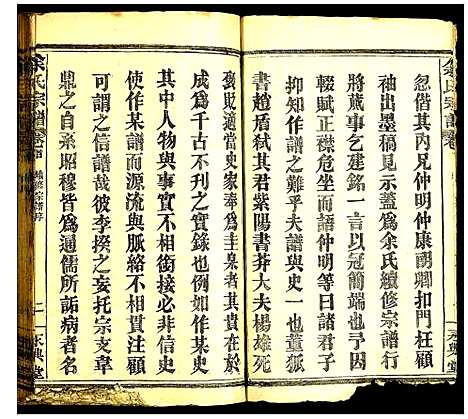 忽偕其內兄仲明仲康朝卿扣門枉顧
袖出墨稿見示蓋爲余氏續修宗譜行
將蕆事乞建銘一言以冠簡端也予因
輟賦正襟危坐而語仲明等曰諸君子
抑知作譜之難乎夫譜與史一也董狐
書趙盾弑其君紫陽書莽大夫楊雄死
褒貶適當史家奉爲圭臬者其貴在於
成爲千古不刊之實錄也倘令
其中人物與事實不相銜接必非信史
使作某譜而源流與脈絡不相
可謂之信譜哉彼李揆之妄托宗支韋
鼎之自系昭穆皆爲通儒所詬病者名
余氏宗譜
卷首
續修宗譜序
二
永興堂